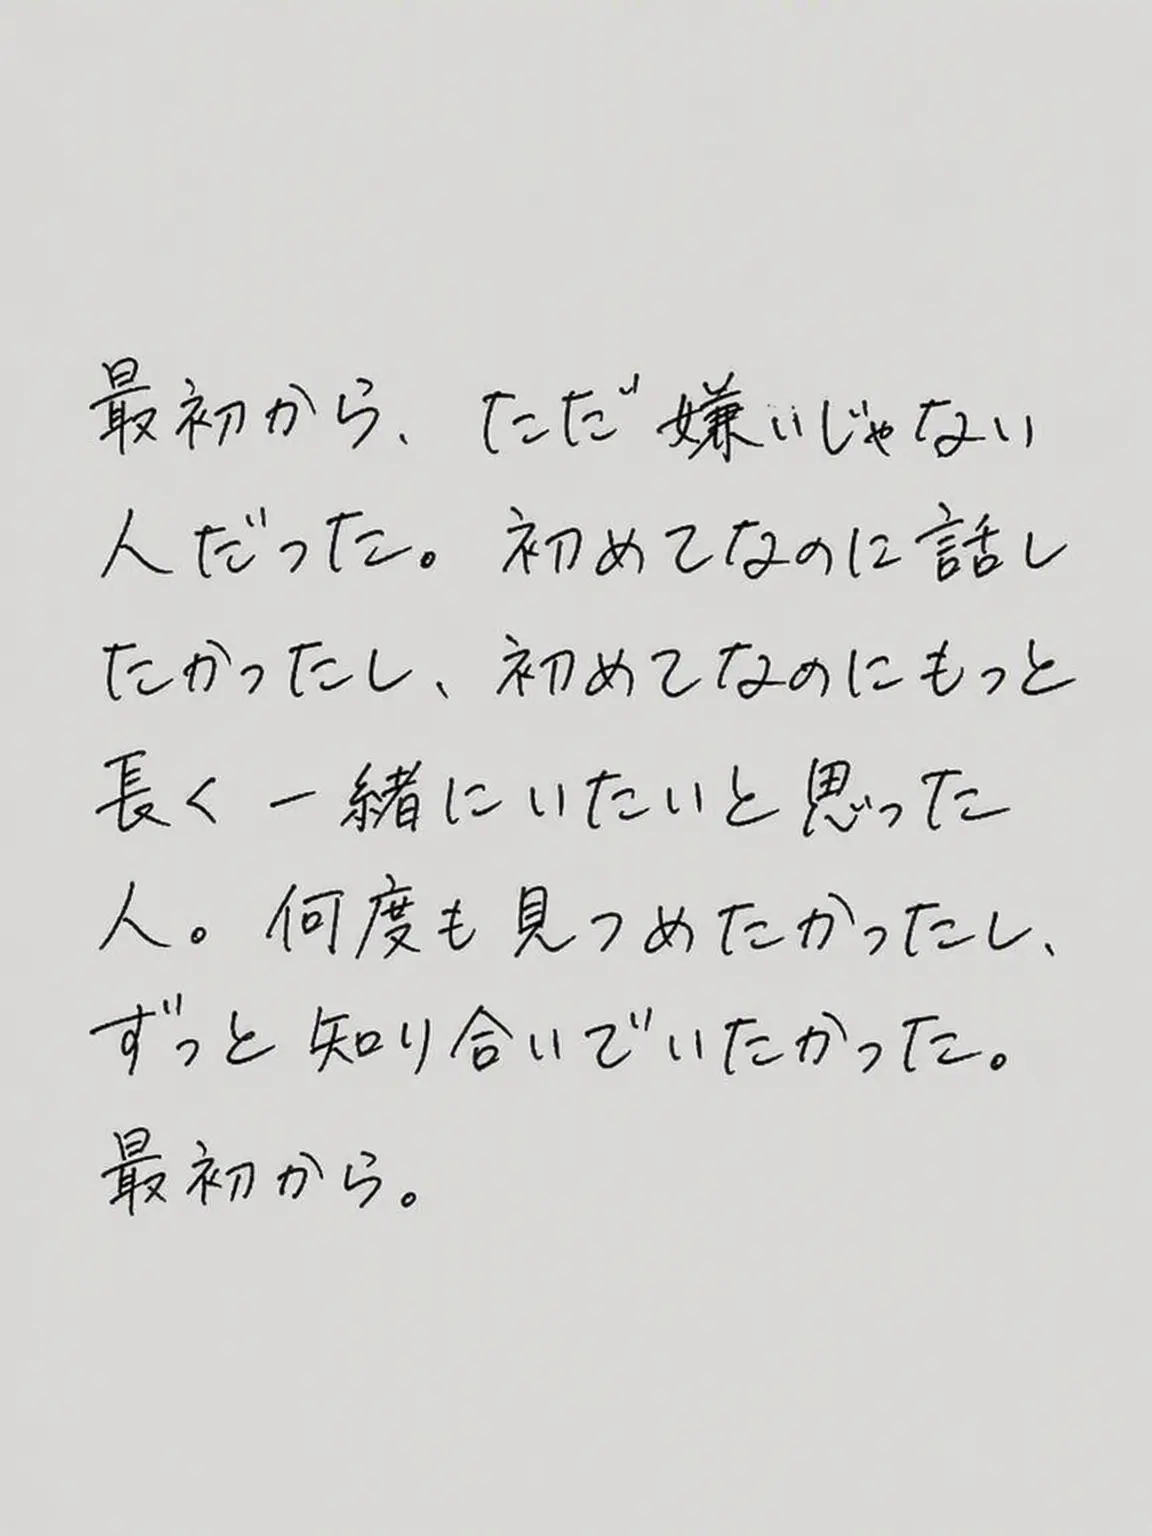 最初から、ただ嫌いじゃない
人だった。初めてなのに話し
たかったし、初めてなのにもっと
長く一緒にいたいと思った
人。何度も見つめたかったし、
ずっと知り合いでいたかった。
最初から。